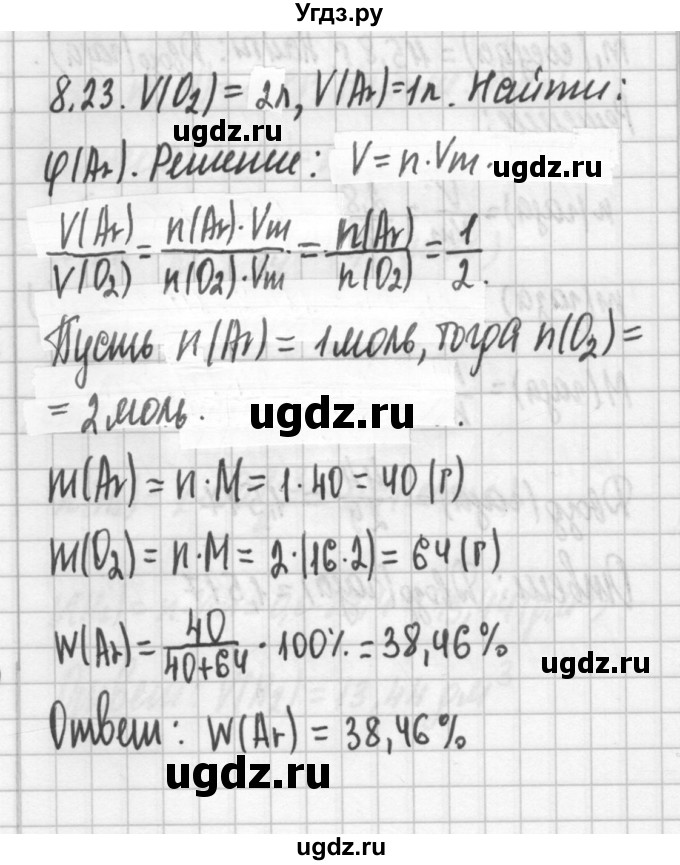 Угдз.ру
8.23. V(O₂) = 2л, V(Ar)=1л. Найти:
ugdz.ru ugdz.ru
φ(Ar). Решение: V = n·Vm.
ugdz.ru
V(Ar)/V(O₂) = n(Ar)·Vm/n(O₂)·Vm = n(Ar)/n(O₂) = 1/2.
Пусть n(Ar) = 1 моль, тогда n(O₂) =
= 2 моль.
ugdz.ru ugdz.ru
m(Ar) = n·M = 1·40 = 40 (г)
m(O₂) = n·M = 2·(16·2) = 64 (г)
W(Ar) = 40/40+64 · 100% = 38,46%
ugdz.ru
Ответ: W(Ar) = 38,46%
ugdz.ru
ugdz.ru